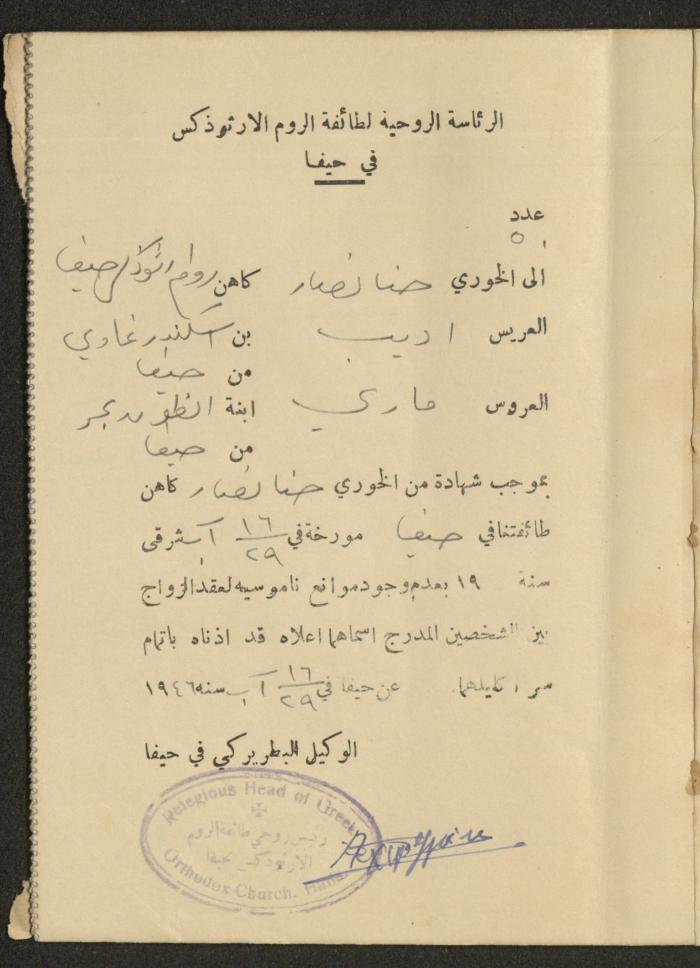 الرئاسة الروحية لطائفة الروم الارثوذكس
في حيفا
عدد
٥٠
الى الخوري حنا نصار كاهن روم ارثوذكس حيفا
العريس اديب بن اسكندر غاوي
من حيفا
العروس ماري ابنة
من حيفا
بموجب شهادة من الخوري حنا نصار كاهن
طائفتنا في حيفا مورخة في ١٦/٢٩ آب شرقى
سنة ١٩ بعدم وجود موانع ناموسيه لعقد الزواج
بين الشخصين المدرج اسماهما اعلاه قد اذناه باتمام
سر اكليلهما. عن حيفا في ١٦/٢٩ آب سنه ١٩٤٦
الوكيل البطريركي في حيفا
Relegious Head of Greek
رئيس روحي طائفة الروم
الارثوذكس بحيفا
Orthodox Church. Haifa